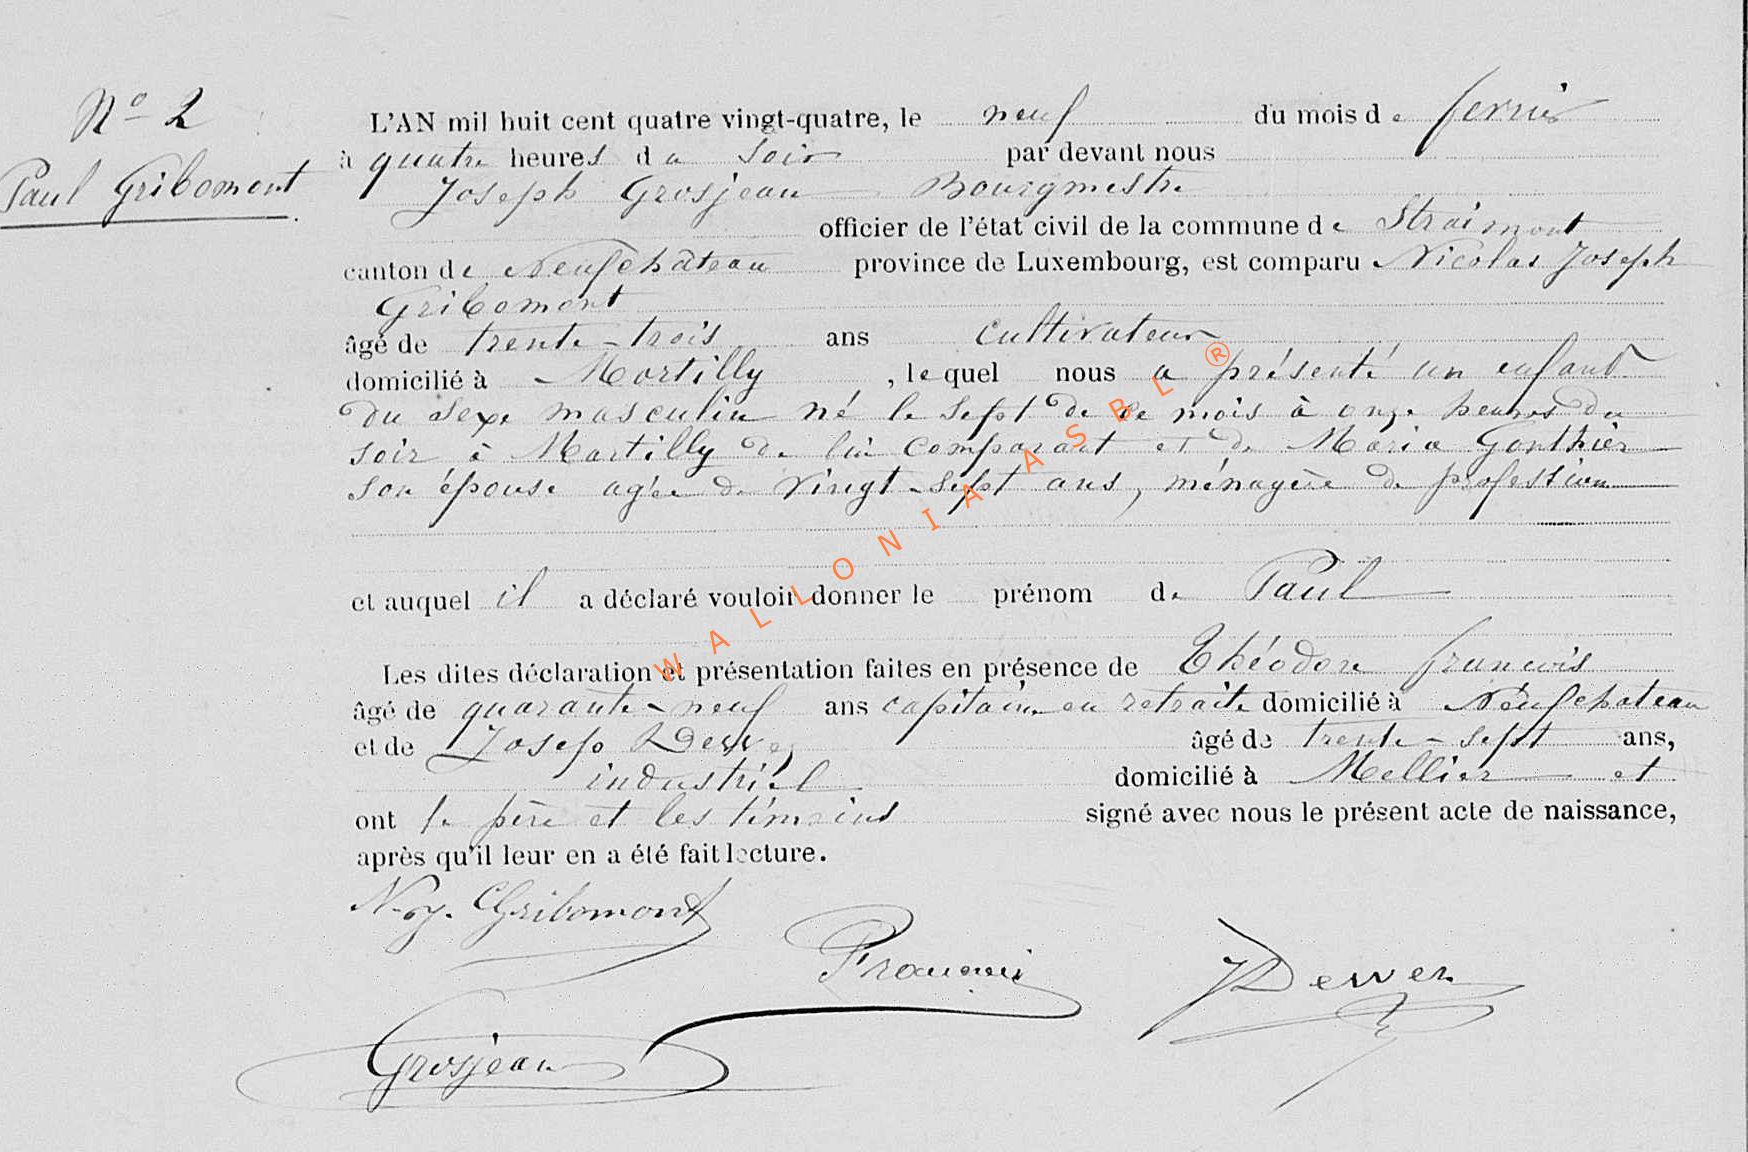 Nº 2
Paul Gribomont
L'AN mil huit cent quatre vingt-quatre, le neuf du mois de fevrier
à quatre heures du soir par devant nous
Joseph Grosjean Bourgmestre
officier de l'état civil de la commune de Straimont
canton de Neufchâteau province de Luxembourg, est comparu Nicolas Joseph
Gribomont
âgé de trente-trois ans cultivateur
domicilié à Martilly , lequel nous a présenté un enfant
du sexe masculin né le sept de ce mois à onze heures du
soir à Martilly de lui comparant et de Maria Gonthier
son épouse agée de vingt-sept ans, ménagère de profession
et auquel il a déclaré vouloir donner le prénom de Paul
Les dites déclaration et présentation faites en présence de Théodore François
âgé de quarante-neuf ans capitaine en retraite domicilié à Neufchateau
et de Joseph Dewez âgé de trente-sept ans,
industriel domicilié à Mellier et
ont le père et les témoins signé avec nous le présent acte de naissance,
après qu'il leur en a été fait lecture.
Gribomont
François
J Dewez
Grosjean
WALLONIA ASBL ®